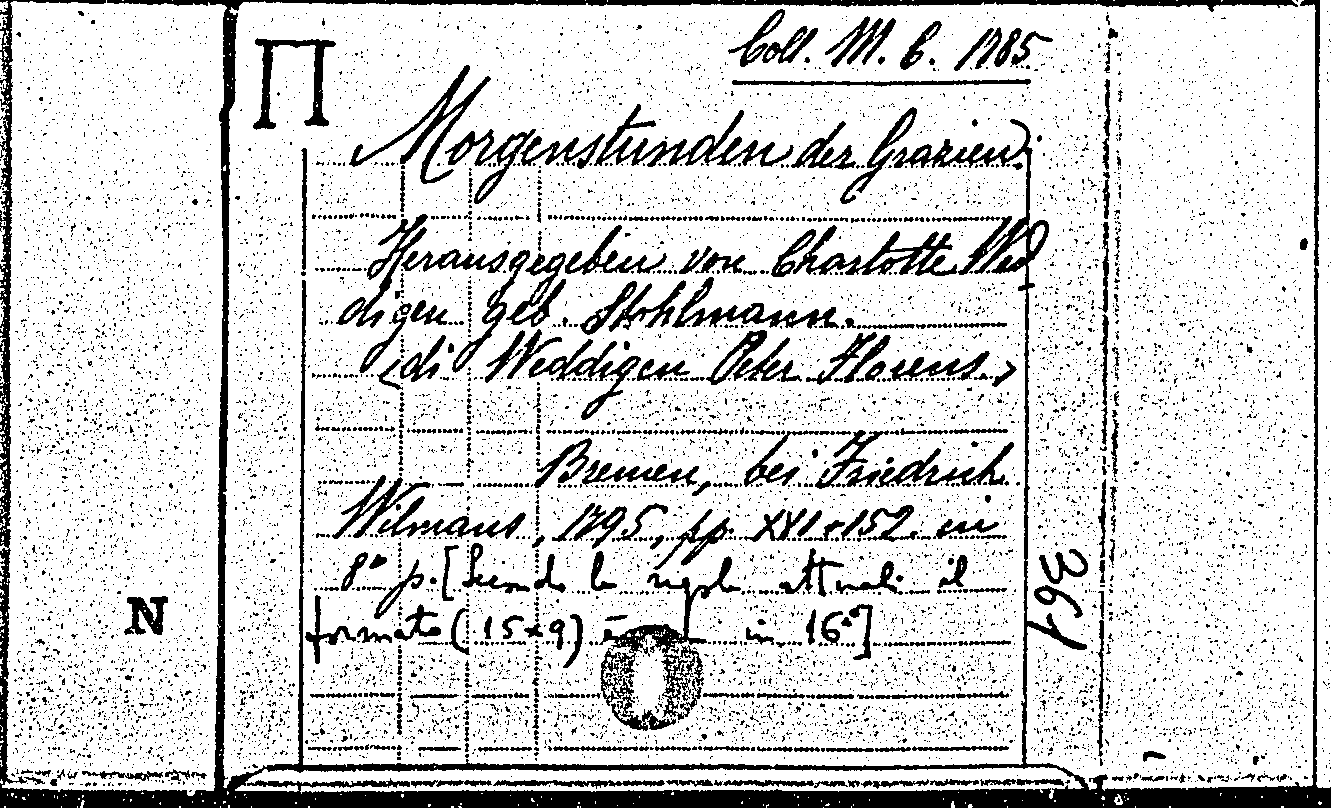 Π
Coll. M. C. 1785
Morgenstunden der Grazien.
Herausgegeben von Charlotte Wed
digen geb. Stohlmann.
<di Weddigen Peter Florens.>
Bremen, bei Friedrich
Wilmans, 1795, pp. XVI+152. in
8° p. [Secondo le regole attuali il
formato (15x9) è in 16°]
361
N